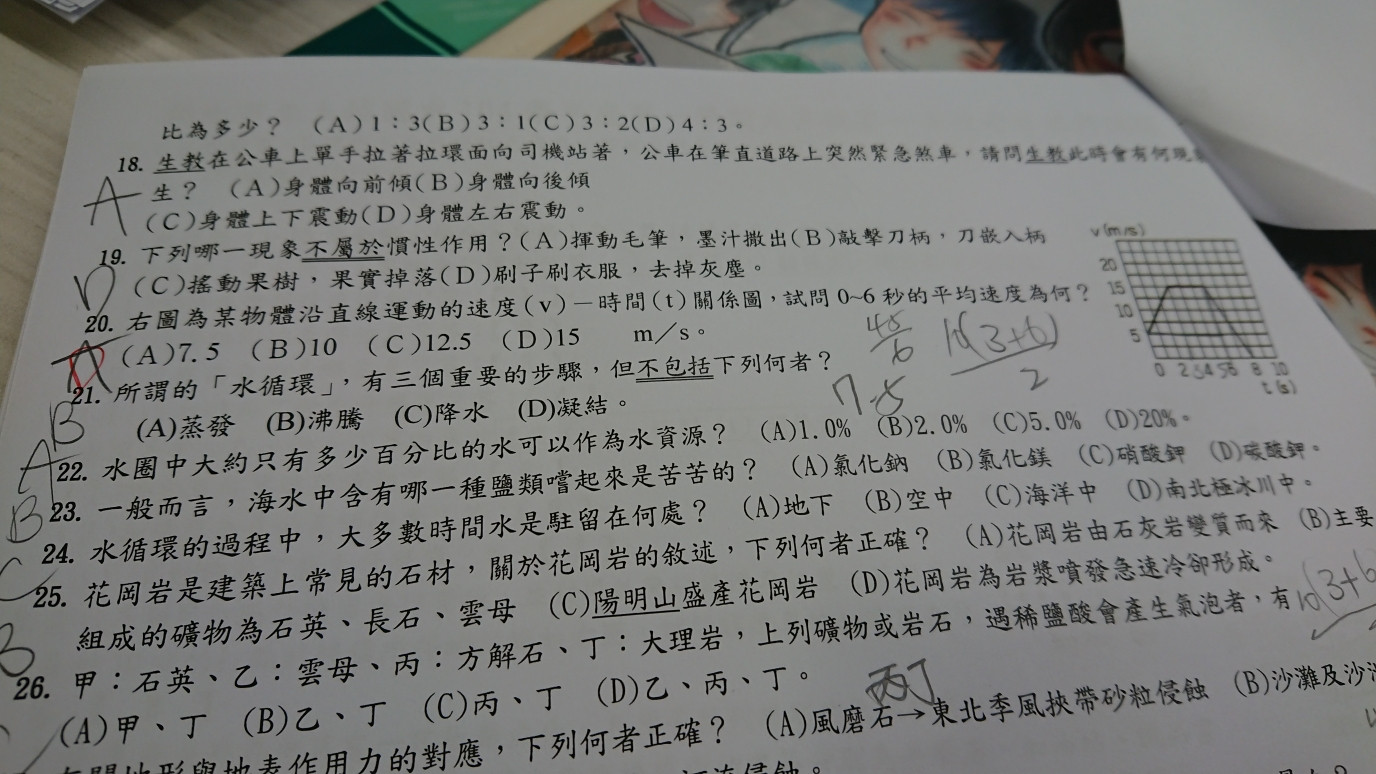 比為多少？ (A)1：3(B)3：1(C)3：2(D)4：3。
18. 生教在公車上單手拉著拉環面向司機站著，公車在筆直道路上突然緊急煞車，請問生教此時會有何現
A 生？ (A)身體向前傾(B)身體向後傾
(C)身體上下震動(D)身體左右震動。
19. 下列哪一現象不屬於慣性作用？(A)揮動毛筆，墨汁撒出(B)敲擊刀柄，刀嵌入柄
D (C)搖動果樹，果實掉落(D)刷子刷衣服，去掉灰塵。
20. 右圖為某物體沿直線運動的速度(v)－時間(t)關係圖，試問 0~6 秒的平均速度為何？
(A)7.5 (B)10 (C)12.5 (D)15 m／s。
v(m/s)
20
15
10
5
0 2 4 6 8 10
t(s)
45/6
10(3+6)/2
7.5
21. 所謂的「水循環」，有三個重要的步驟，但不包括下列何者？
B (A)蒸發 (B)沸騰 (C)降水 (D)凝結。
A 22. 水圈中大約只有多少百分比的水可以作為水資源？ (A)1.0% (B)2.0% (C)5.0% (D)20%。
B 23. 一般而言，海水中含有哪一種鹽類嚐起來是苦苦的？ (A)氯化鈉 (B)氯化鎂 (C)硝酸鉀 (D)碳酸鉀。
24. 水循環的過程中，大多數時間水是駐留在何處？ (A)地下 (B)空中 (C)海洋中 (D)南北極冰川中。
C 25. 花岡岩是建築上常見的石材，關於花岡岩的敘述，下列何者正確？ (A)花岡岩由石灰岩變質而來 (B)主要
組成的礦物為石英、長石、雲母 (C)陽明山盛產花岡岩 (D)花岡岩為岩漿噴發急速冷卻形成。
B 26. 甲：石英、乙：雲母、丙：方解石、丁：大理岩，上列礦物或岩石，遇稀鹽酸會產生氣泡者，有
10(3+6
(A)甲、丁 (B)乙、丁 (C)丙、丁 (D)乙、丙、丁。
丙丁
關地形與地表作用力的對應，下列何者正確？ (A)風磨石→東北季風挾帶砂粒侵蝕 (B)沙灘及沙
侵蝕。